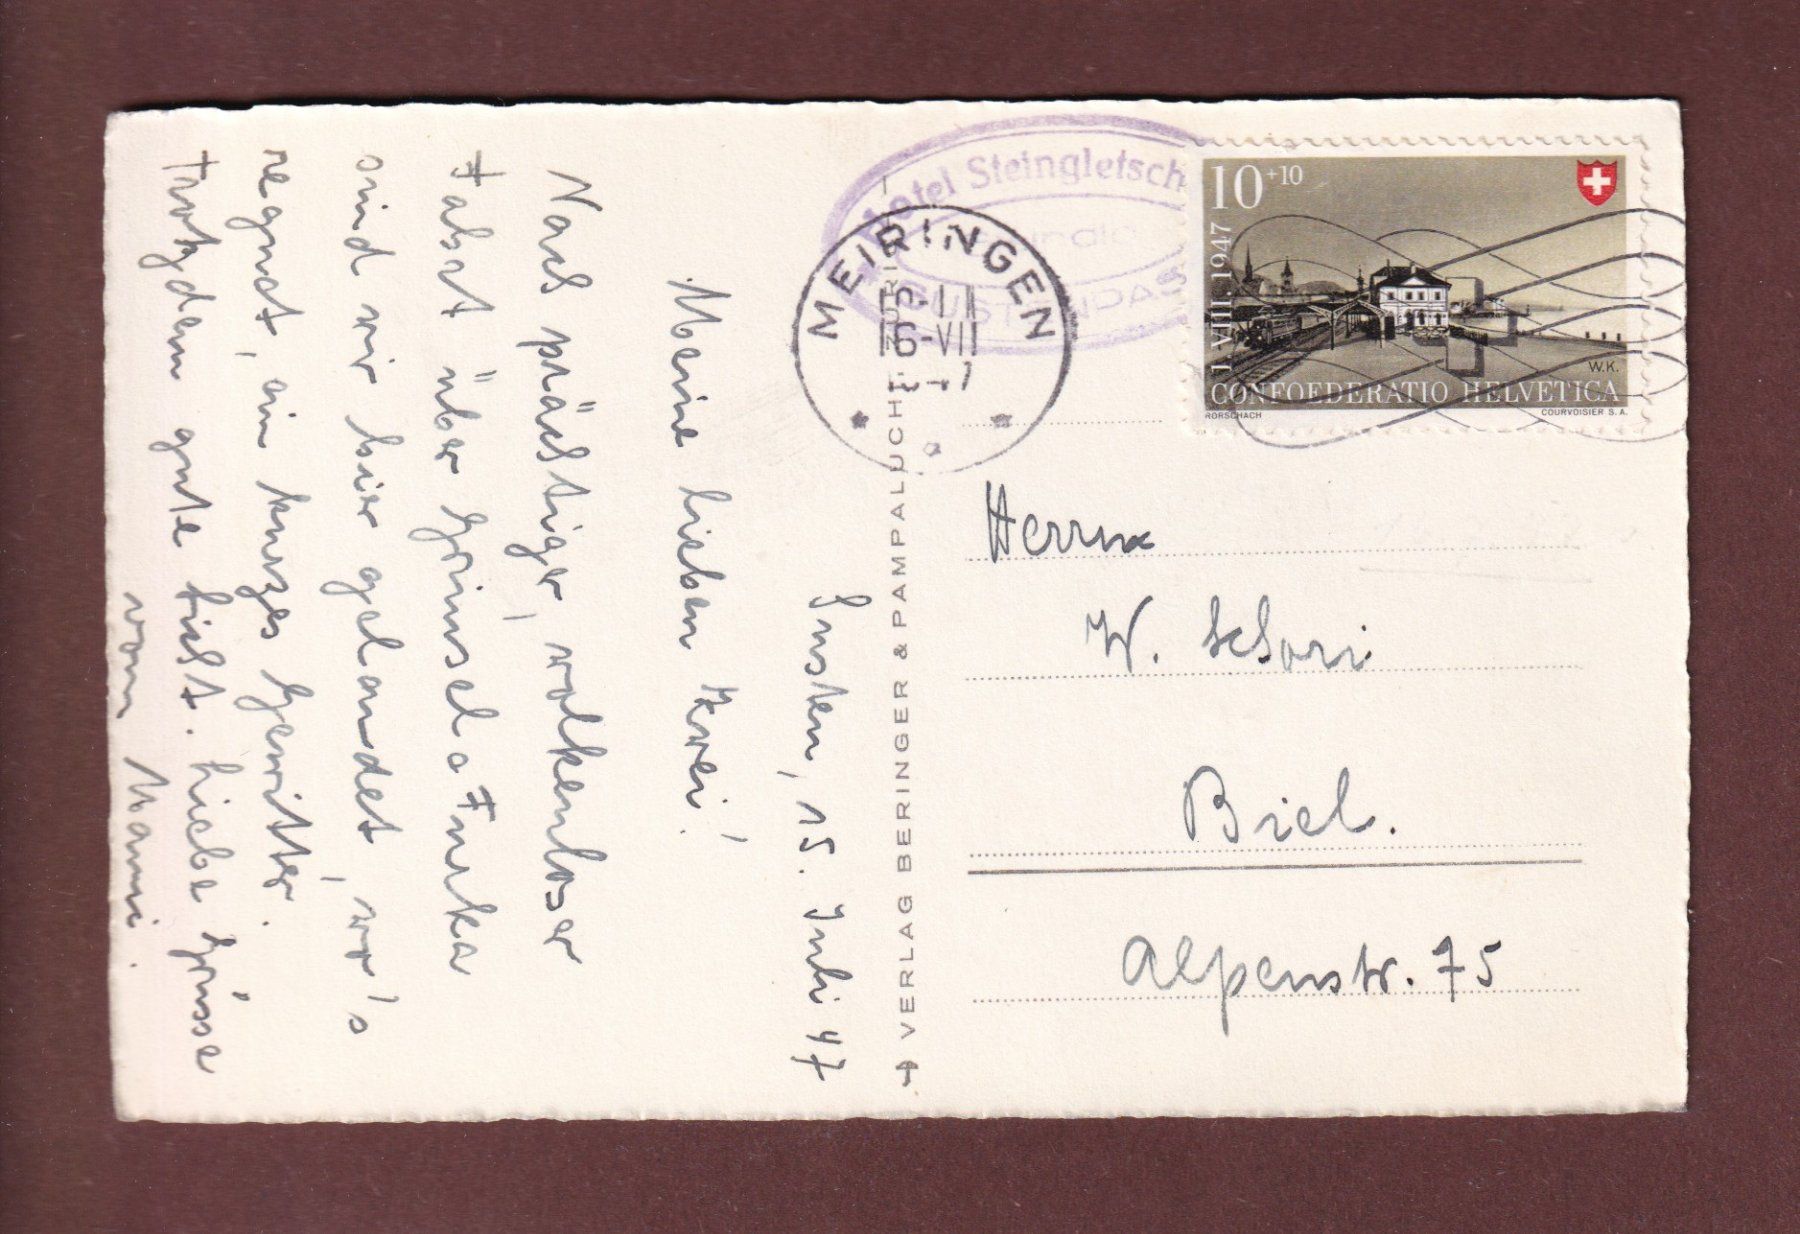 Susten, 15. Juli 47
Meine lieben Zwei!
Nach prächtiger, wolkenloser
Fahrt über Grimsel & Furka
sind wir hier gelandet, wo's
regnet, ein kurzes Gewitter.
Trotzdem gute Sicht. Liebe Grüsse
vom Mami.
→ VERLAG BERINGER & PAMPALUCHI - ZÜRICH
Hotel Steingletsch
SUSTENPASS
MEIRINGEN
-VII
47
10+10
1 VIII. 1947
W.K.
CONFOEDERATIO HELVETICA
RORSCHACH
COURVOISIER S.A.
Herrn
W. Schori
Biel.
Alpenstr. 75